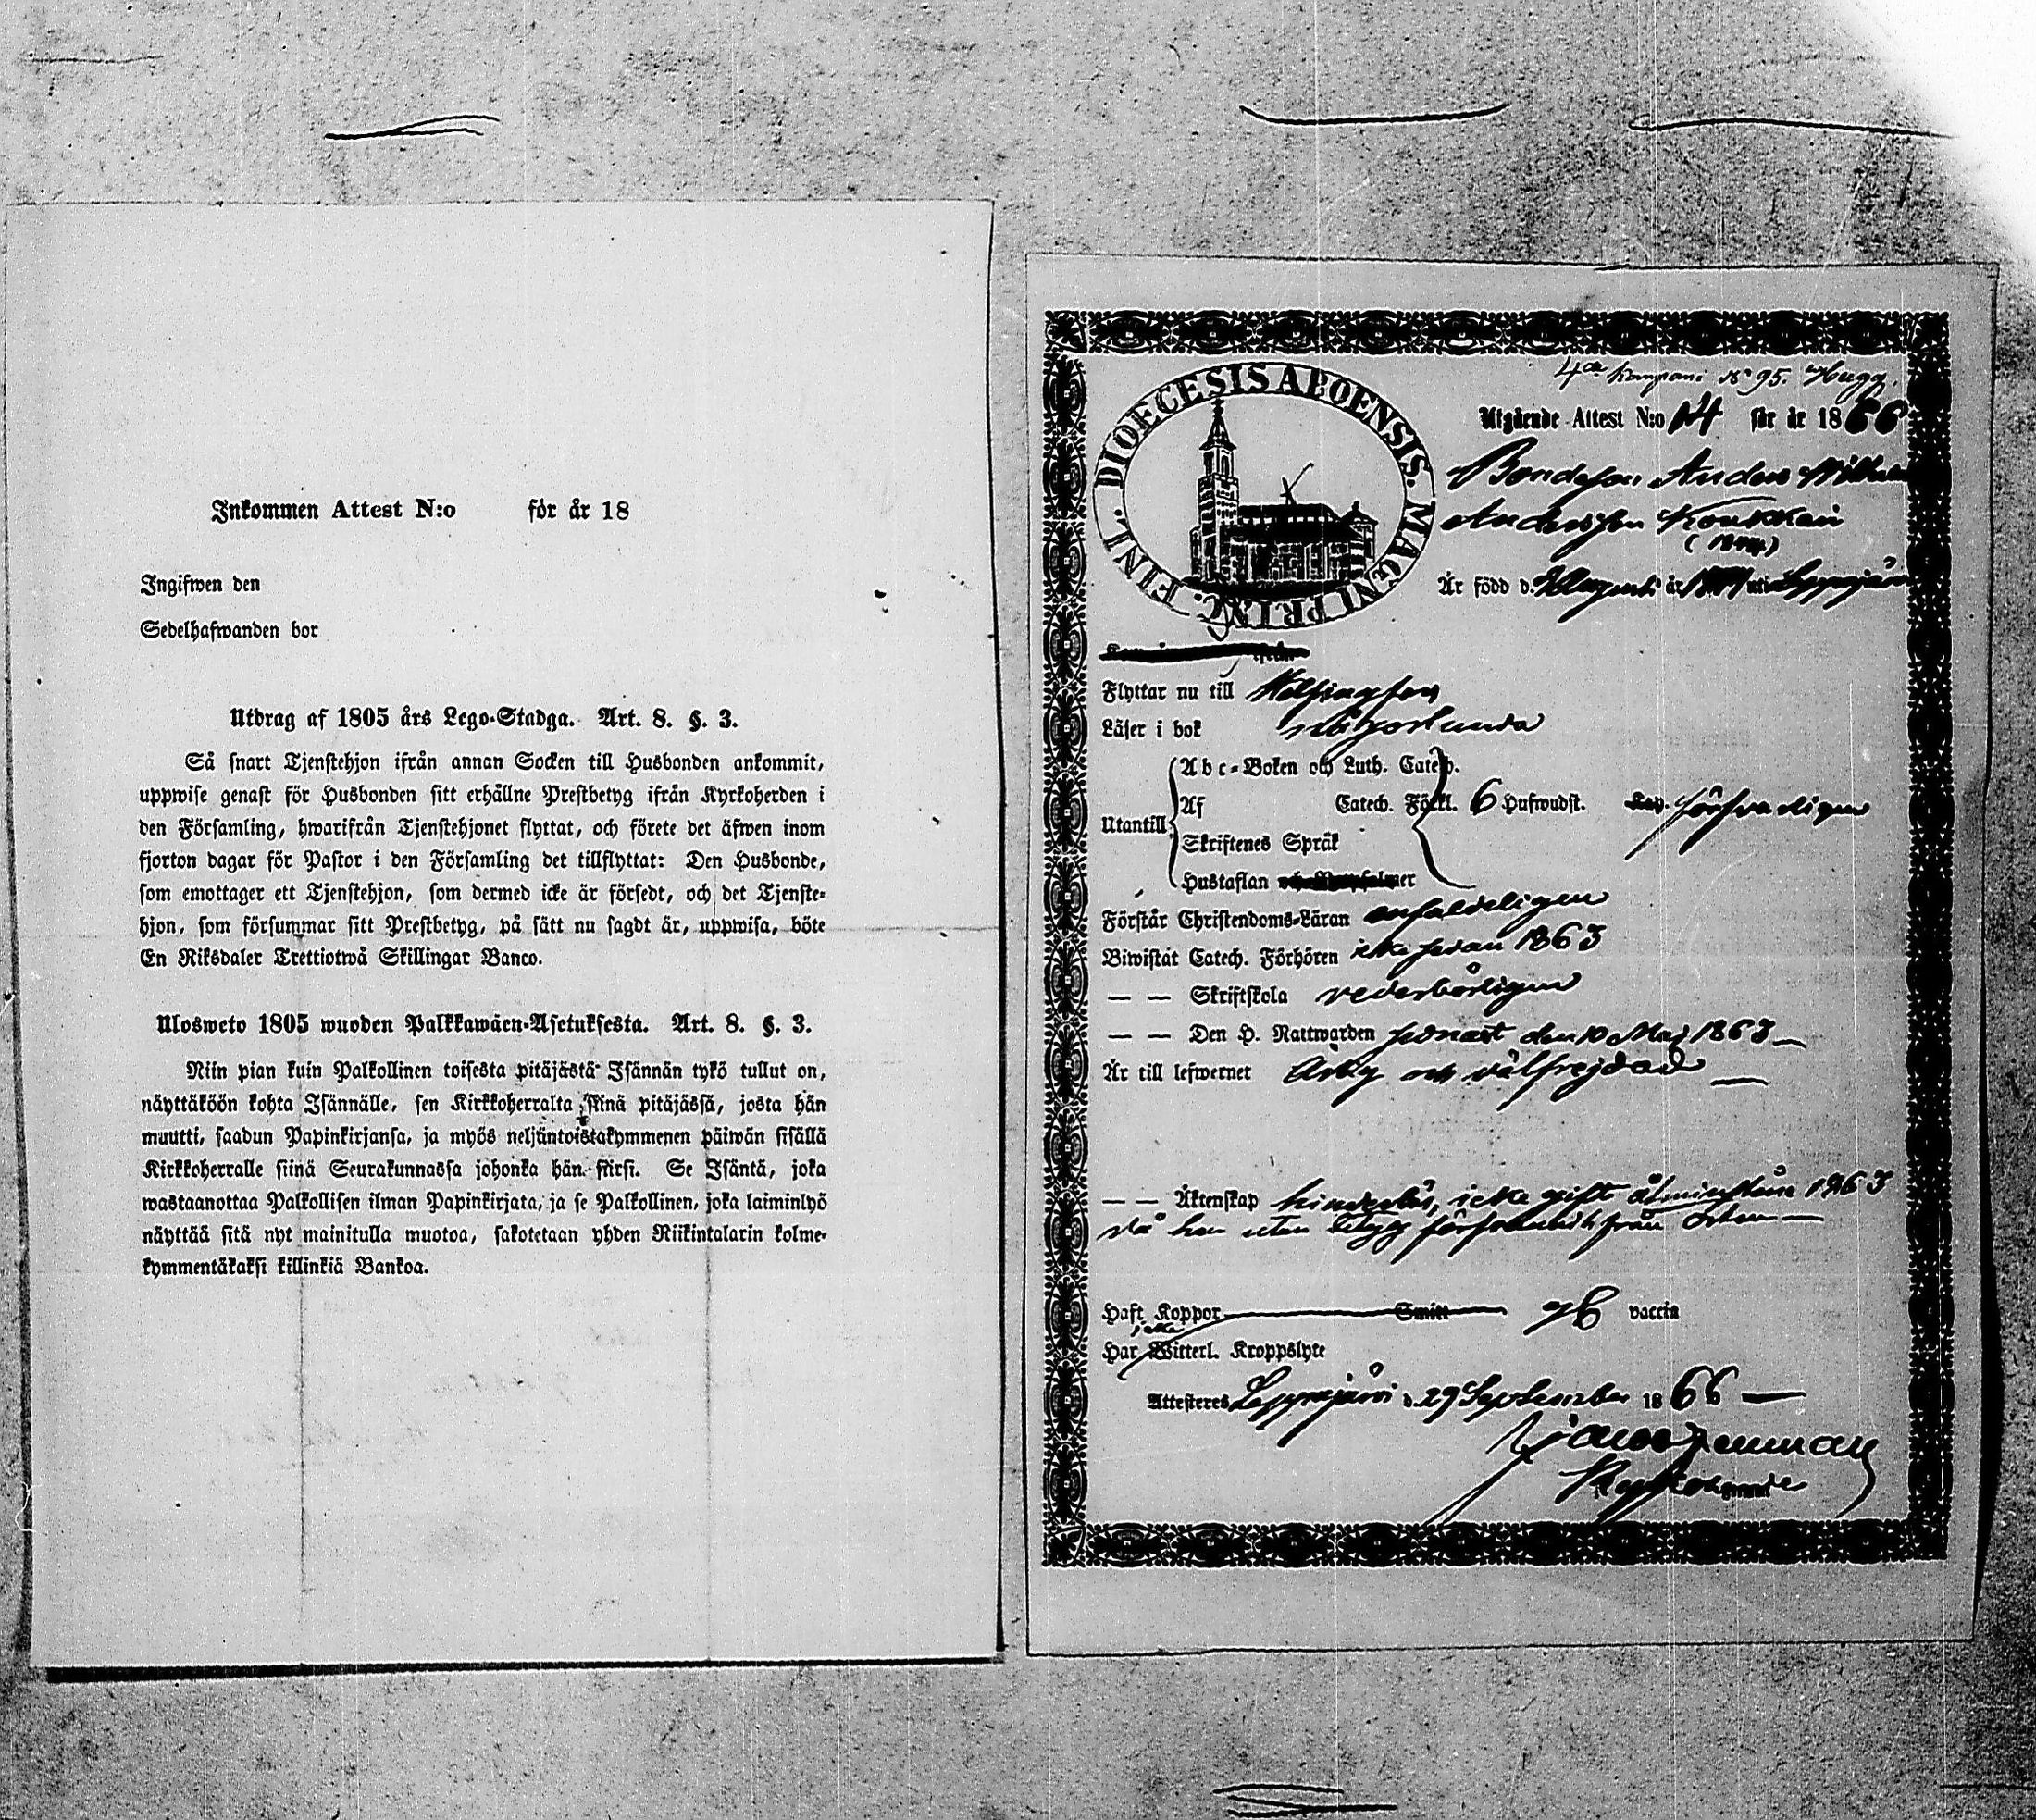 Inkommen Attest N:o för år 18
Ingifwen den
Sedelhafwanden bor
Utdrag af 1805 års Lego-Stadga. Art. 8. §. 3.
Så snart Tjenstehjon ifrån annan Socken till Husbonden ankommit,
uppwise genast för Husbonden sitt erhållne Prestbetyg ifrån Kyrkoherden i
den Församling, hwarifrån Tjenstehjonet flyttat, och förete det äfwen inom
fjorton dagar för Pastor i den Församling det tillflyttat: Den Husbonde,
som emottager ett Tjenstehjon, som dermed icke är försedt, och det Tjenste-
hjon, som försummar sitt Prestbetyg, på sätt nu sagdt är, uppwisa, böte
En Riksdaler Trettiotwå Skillingar Banco.
Ulosweto 1805 wuoden Palkkawäen-Asetuksesta. Art. 8. §. 3.
Niin pian kuin Palkollinen toisesta pitäjästä Isännän tykö tullut on,
näyttäköön kohta Isännälle, sen Kirkkoherralta siinä pitäjässä, josta hän
muutti, saadun Papinkirjansa, ja myös neljäntoistakymmenen päiwän sisällä
Kirkkoherralle siinä Seurakunnassa johonka hän siirsi. Se Isäntä, joka
wastaanottaa Palkollisen ilman Papinkirjata, ja se Palkollinen, joka laiminlyö
näyttää sitä nyt mainitulla muotoa, sakotetaan yhden Riikintalarin kolme-
kymmentäkaksi killinkiä Bankoa.
DIOECESIS ABOENSIS. MAGNI PRINC. FINL.
4de Kompani No 95. Hugg.
Utgående Attest N:o 14 för år 1866
Bondeson Anders Wilhelm
Andersson Koukkari
Är född d. Augusti år uti Leppäjärvi
Flyttar nu till Helsingfors
Läser i bok
Abc-Boken och Luth. Catech.
Utantill Af Catech. Förkl. 6 Hufwudst. försvarligen
Skriftenes Språk
Hustaflan
Förstår Christendoms-Läran enfaldeligen
Biwistat Catech. Förhören icke sedan 1863
— — Skriftskola vederbörligen
— — Den H. Nattwarden senast den 10 Maj 1863
Är till lefwernet ärlig och välfrejdad
— — Äktenskap hinderlös, icke gift åtminstone 1863
då han utan betyg försvunnit från orten
Haft Koppor Smitt vaccin
Har icke Witterl. Kroppslyte
Attesteres d. 29 September 1866
Kyrkoherde